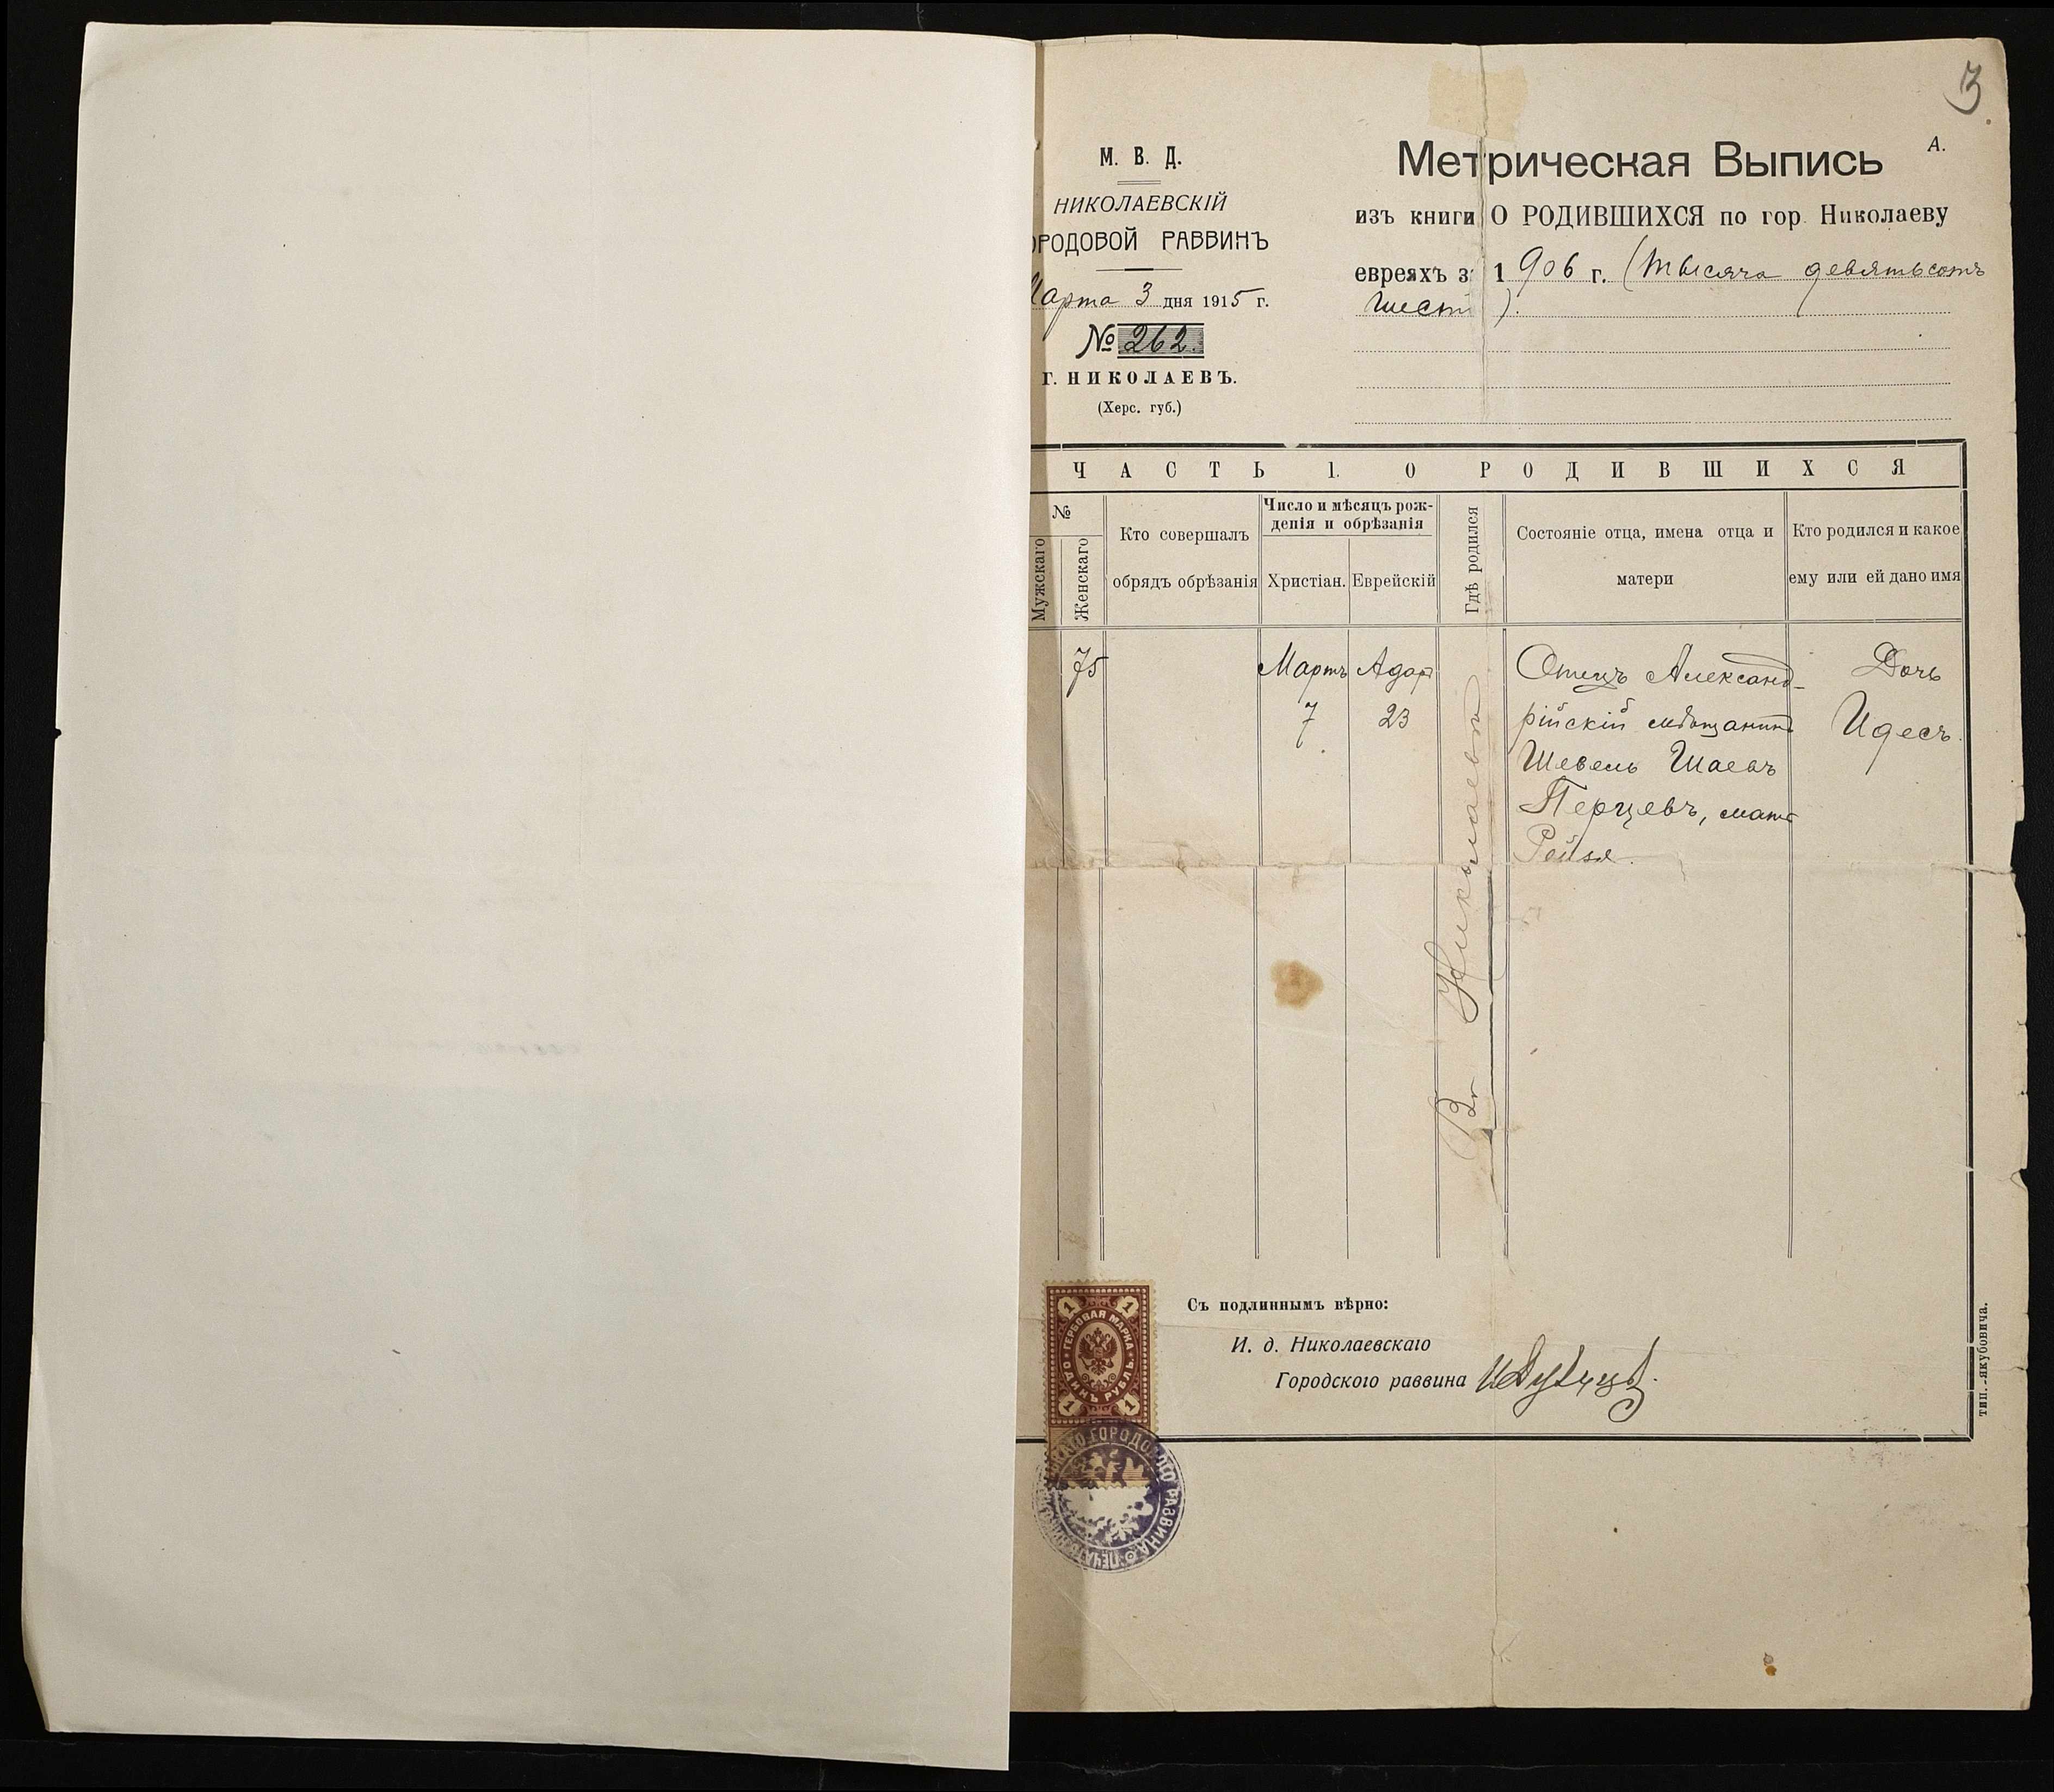 3.
М. В. Д.
НИКОЛАЕВСКІЙ
ОРОДОВОЙ РАВВИНЪ
Марта 3 дня 1915 г.
№ 262.
г. НИКОЛАЕВЪ.
(Херс. губ.)
А.
Метрическая Выпись
изъ книги О РОДИВШИХСЯ по гор. Николаеву
евреяхъ з 1906 г. (тысяча девятьсотъ
шесть).
ЧАСТЬ 1. О РОДИВШИХСЯ
№
Мужскаго
Женскаго
Кто совершалъ
обрядъ обрѣзанія
Число и мѣсяцъ рож-
денія и обрѣзанія
Христіан.
Еврейскій
Гдѣ родился
Состояніе отца, имена отца и
матери
Кто родился и какое
ему или ей дано имя
75
Мартъ
7
Адар
23
Въ Николаевѣ
Отецъ Александ-
рійскій мѣщанинъ
Шевель Шаевъ
Перцевъ, мать
Рейзя.
Дочь
Идесъ.
Съ подлиннымъ вѣрно:
И. д. Николаевскаго
Городского раввина
1 1
ГЕРБОВАЯ МАРКА
ОДИНЪ РУБЛЬ
1 1
ГОРОДОВОГО РАВВИНА ПЕЧАТЬ
тип. Якубовича.